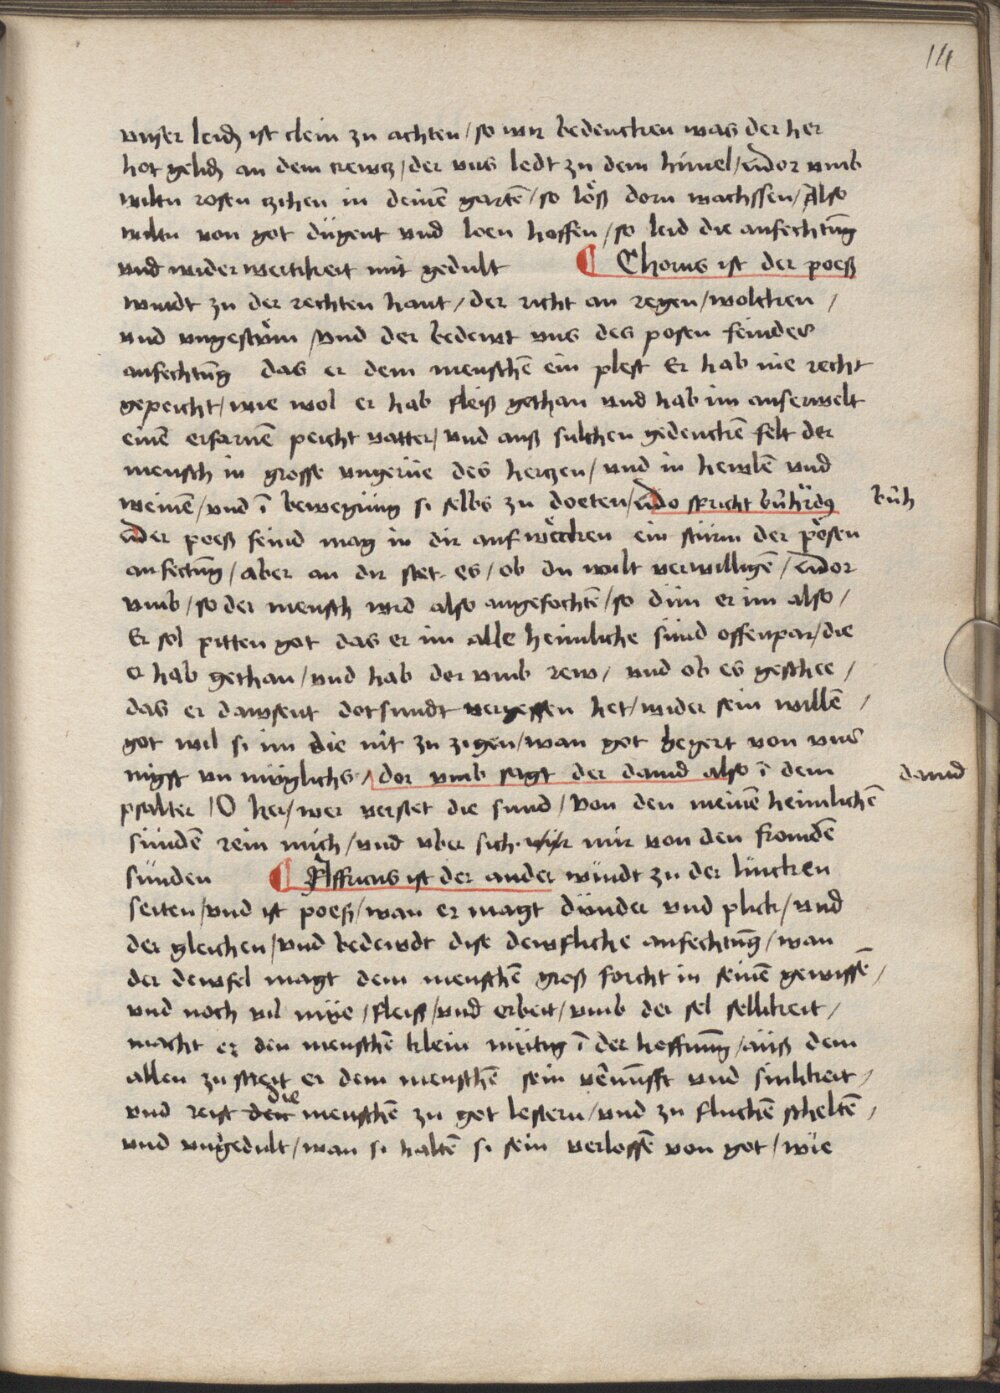 14
vnser leidē ist clein zu achten / so wir bedencken was der her
hot gelidē an dem crewcz / der vns ledt zu dem himel / Dor vmb
wiltu rosen zihen in deinē gartē / so löß dorn wachssen / Also
wiltu von got dügent vnd loen hoffen / so leid die anfechtūg
vnd wider wertikeit mit gedult ¶ Chorus ist der poeß
windt zu der rechten hant / der richt an regen / wolcken /
vnd vngestöm / vnd der bedewt vns des posen feindes
anfechtūg das er dem menschē ein plest Er hab nie recht
gepeicht / wie wol er hab fleiß gethan vnd hab im auserwelt
einē erfarnē peicht vatter / vnd auß sulchen gedenckē felt der
mensch in grosse vngerüe des herczen / vnd in hewlē vnd
weinē / vnd ī bewegüng si selbs zu doeten / Do spricht bn̄hrdq bn̄h
Der poeß feind mag in dir auf wecken ein stürm der pösen
anfectūg / aber an dir stet es / ob du wilt verwilligē / Dor
vmb / so der mensch wird also angefochtē / so düm er im also /
Er sol pitten got das er im alle heimliche sünd offenpar / die
er hab gethan / vnd hab dor vmb rew / vnd ob es geschee /
das er dawsent dotsundt vergessen het / wider sein willē /
got wil si im die nit zu zigen / wan got begert von vns
nigst vn müglichs / dor vmb sagt der dauid also ī dem dauid
psalter / O her / wer verstet die sund / von den meinē heimlichē
sündē rein mich / vnd vber sich mir von den fromdē
sünden ¶ Affricus ist der ander windt zu der lincken
seiten / vnd ist poeß / wan er magt dünder vnd plick / vnd
der gleichen / vnd bedewdt dise dewfliche anfechtūg / wan
der dewfel magt dem menschē groß forcht in seinē gewissē /
vnd noch vil müe / fleiss / vnd erbeit / vmb der sel sellikeit /
macht er den menschē klein mütig ī der hoffnūg / auß dem
allen zu strei͏̈t er dem menschē sein vernūfft vnd sinlikeit /
vnd reist die menschē zu got lestern / vnd zu fluchē scheltē /
vnd vngedult / wan si haltē si sein verlossē von got / wie